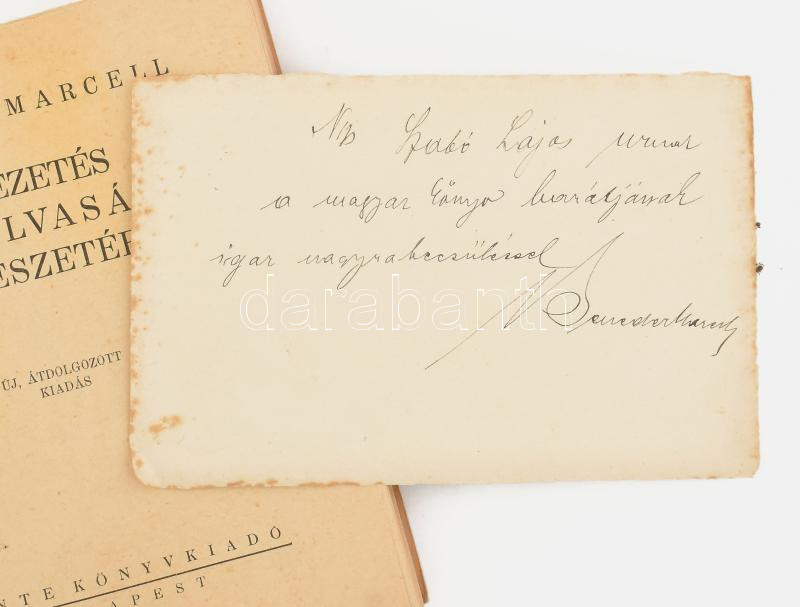 MARCELL
EZETÉS
LVASÁ
ESZETÉ
ÚJ, ÁTDOLGOZOTT
KIADÁS
NTE KÖNYVKIADÓ
APEST
Szabó Lajos urnak
a magyar könyv barátjának
igaz nagyrabecsüléssel
Benedek Marcell
darabanth